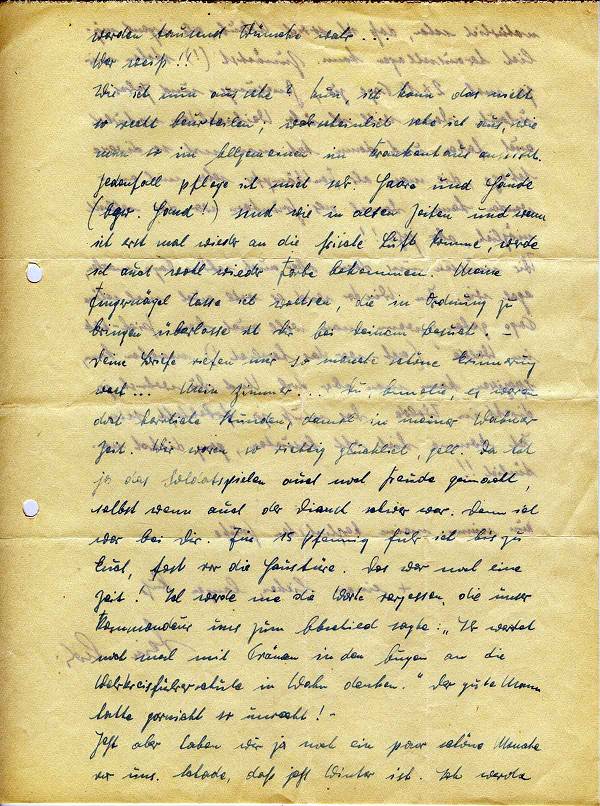 werden tausend Wünsche wahr...
Wer weiß!!!
Wie ich nun aussehe? Nun, ich kann das nicht
so recht beurteilen, wahrscheinlich sehe ich aus, wie
man so im Allgemeinen im Krankenhaus aussieht.
Jedenfall pflege ich mich sehr. Haare und Hände
(bzw. Hand!) sind wie in alten Zeiten und wenn
ich erst mal wieder an die frische Luft komme, werde
ich auch wohl wieder Farbe bekommen. Meine
Fingernägel lasse ich wachsen, die in Ordnung zu
bringen überlasse ich Dir bei Deinem Besuch. –
Deine Briefe riefen mir so manche schöne Erinnerung
wach... Mein Zimmer... Du, es waren
doch herrliche Stunden, damals in meiner Wahner
Zeit. Wir waren so richtig glücklich, gell. Da hat
ja das Soldatspielen auch noch Freude gemacht,
selbst wenn auch der Dienst schwer war. Denn ich
war bei Dir. Für 15 Pfennig fuhr ich bis zu
Euch, fast vor die Haustüre. Das war noch eine
Zeit! Ich werde nie die Worte vergessen, die unser
Kommandeur uns zum Abschied sagte: „Ihr werdet
noch mal mit Tränen in den Augen an die
Wehrkreisführerschule in Wahn denken." Der gute Mann
hatte garnicht so unrecht! –
Jetzt aber haben wir ja noch ein paar schöne Monate
vor uns. Schade, daß jetzt Winter ist. Ich werde